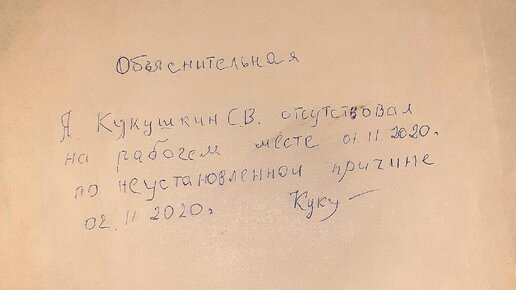 Объяснительная
Я. Кукушкин С.В. отсутствовал
на рабочем месте 01.11.2020г.
по неустановленной причине
02.11 2020г. Куку